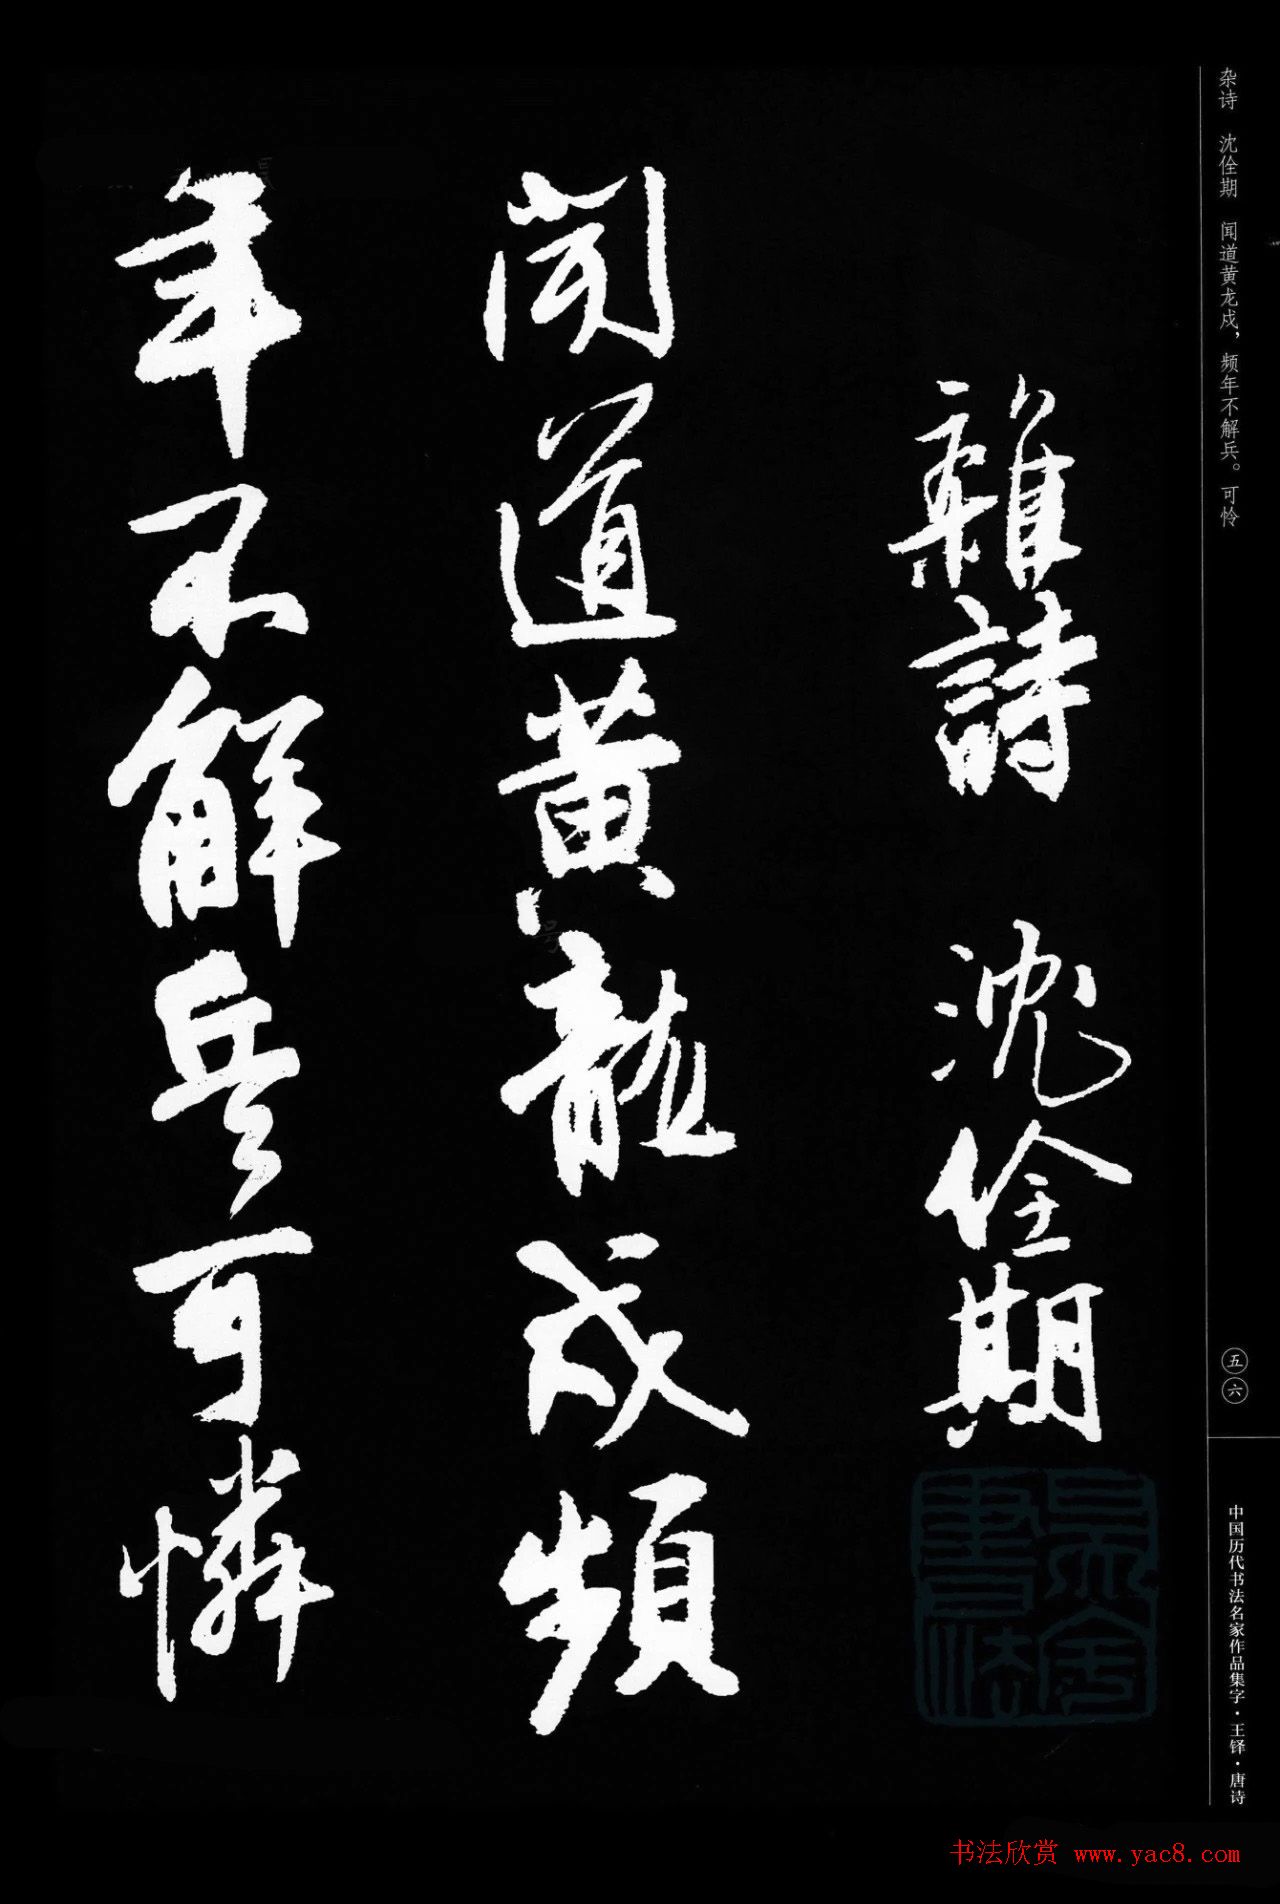 雜詩 沈佺期
聞道黃龍戍頻
年不解兵可憐
杂诗 沈佺期 闻道黄龙戍，频年不解兵。可怜
五六
中国历代书法名家作品集字·王铎·唐诗
书法欣赏 www.yac8.com